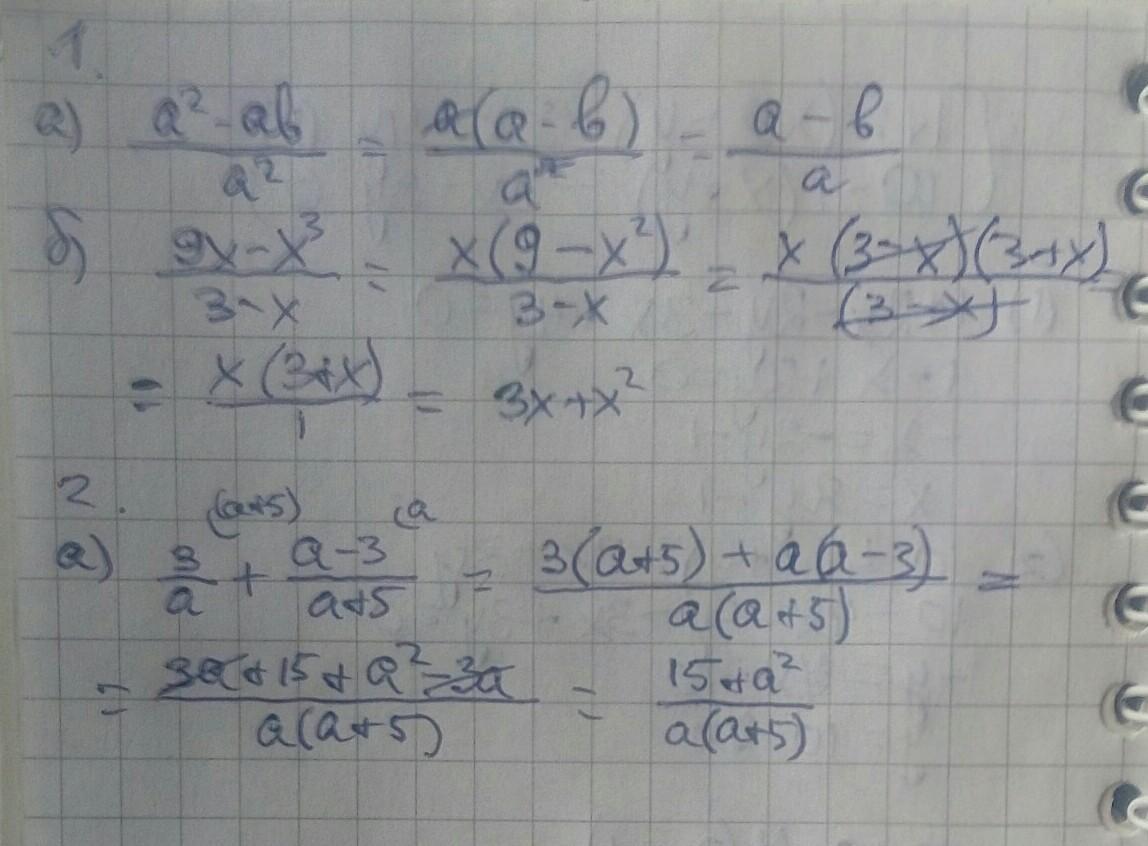 1.
а) (a² - ab)/a² = a(a - b)/a² = (a - b)/a
б) (9x - x³)/(3 - x) = x(9 - x²)/(3 - x) = x(3 - x)(3 + x)/(3 - x)
= x(3 + x)/1 = 3x + x²
2.
(a+5) (a
а) 3/a + (a - 3)/(a + 5) = (3(a+5) + a(a - 3))/(a(a+5)) =
= (3a + 15 + a² - 3a)/(a(a+5)) = (15 + a²)/(a(a+5))